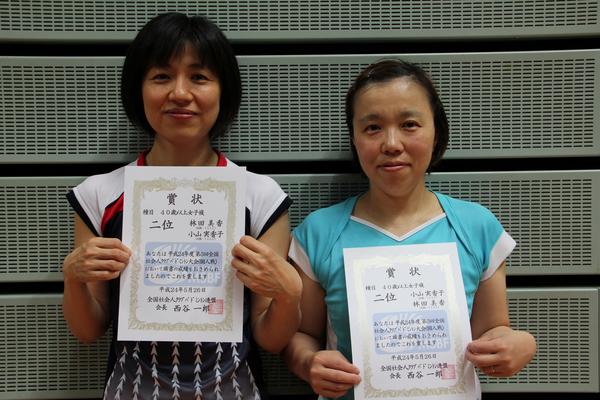 賞状
種目 40歳以上女子複
二位 林田 美香
小山 実香子
あなたは平成24年度第3回全国
社会人クラブバドミントン大会(個人戦)
において頭書の成績をおさめられ
ましたのでこれを賞します
平成24年5月26日
全国社会人クラブバドミントン連盟
会長 西谷 一郎
賞状
種目 40歳以上女子複
二位 小山 実香子
林田 美香
あなたは平成24年度第3回全国
社会人クラブバドミントン大会(個人戦)
において頭書の成績をおさめられ
ましたのでこれを賞します
平成24年5月26日
全国社会人クラブバドミントン連盟
会長 西谷 一郎